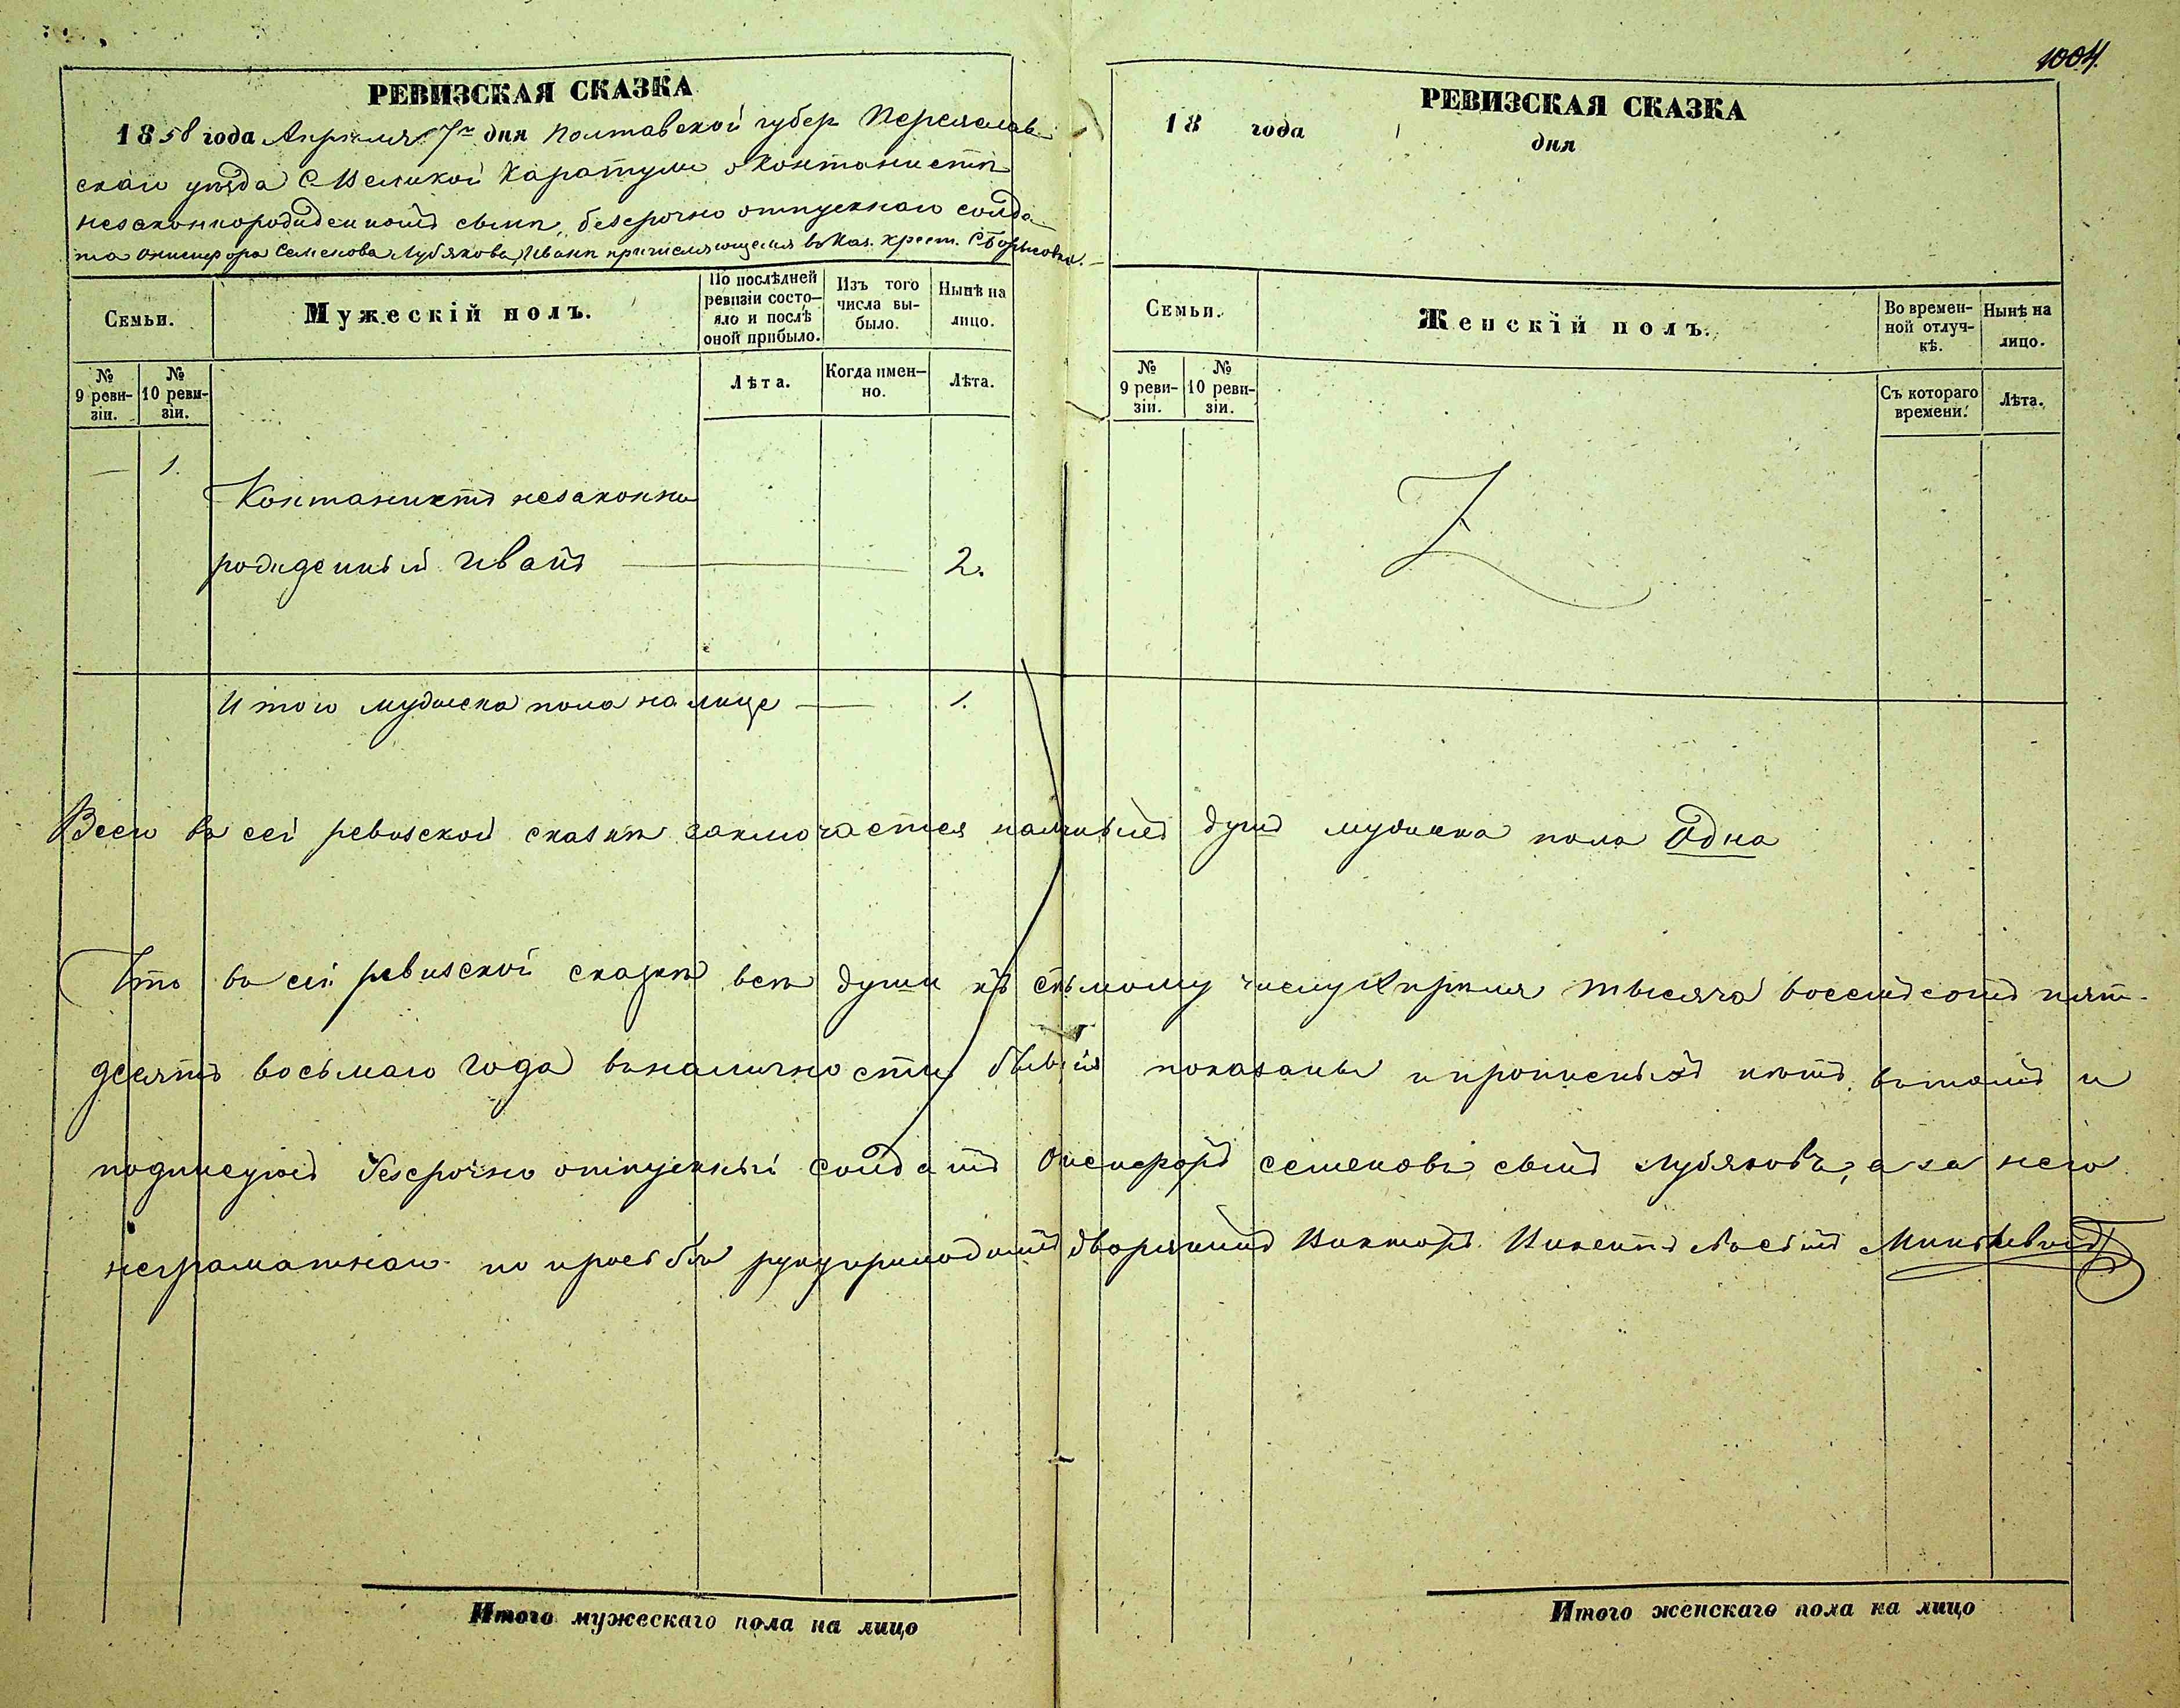 1004
РЕВИЗСКАЯ СКАЗКА
1858 года Апреля 7го дня Полтавской губер Переяслав
скаго уезда С Великой Каратули о Контонисте
незаконнорожденномъ сыне, безсрочно отпускнаго солда
та Онисифора Семенова Лубякова, Иване причисляющемся въ Каз. крест. С Борисовки.
Семьи.
Мужескій полъ.
По послѣдней ревизіи состо-яло и послѣ оной прибыло.
Изъ того числа вы-было.
Нынѣ на лицо.
№ 9 реви-зіи.
№ 10 реви-зіи.
Лѣта.
Когда имен-но.
Лѣта.
— 1.
Контонистъ незаконно
рожденный Иванъ — 2.
Итого мужеска пола на лице — 1.
РЕВИЗСКАЯ СКАЗКА
18 года дня
Семьи.
Женскій полъ.
Во времен-ной отлуч-кѣ.
Нынѣ на лицо.
№ 9 реви-зіи.
№ 10 реви-зіи.
Съ котораго времени.
Лѣта.
Всего въ сей ревизской сказке заключается наличныхъ душъ мужеска пола Одна
Что въ сей ревизской сказке все души къ седьмому числу Апреля тысяча восемсотъ пят-
десятъ восьмаго года въ наличности бывшія показаны и прописныхъ нетъ, въ томъ и
подписуюсь безсрочно отпускный солдатъ Онисифоръ Семеновъ сынъ Лубяковъ, а за него
неграматнаго по прозбе руку приложилъ дворянинъ Викторъ
Итого мужескаго пола на лицо
Итого женскаго пола на лицо